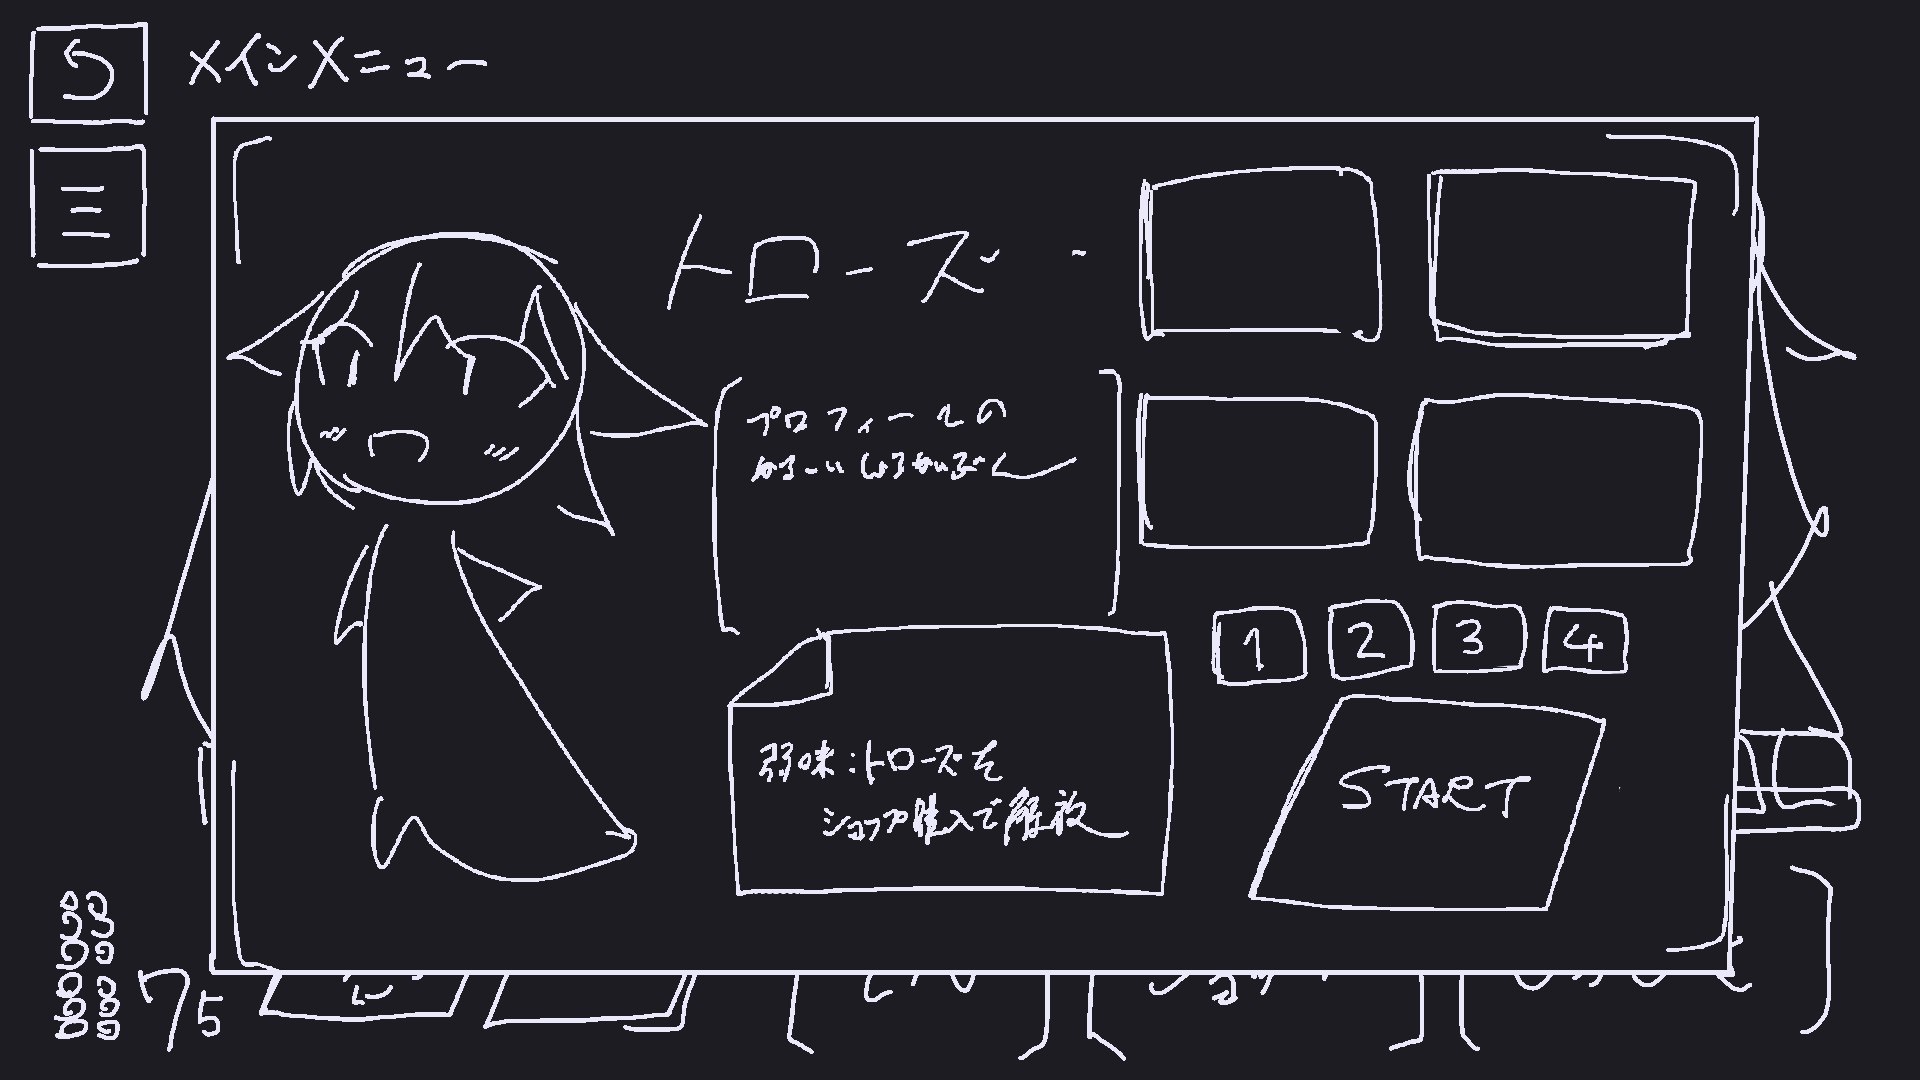 メインメニュー
トローズ
プロフィールの
かるーいしょうかいぶん
1 2 3 4
弱味:トローズを
ショップ購入で解放
START
75